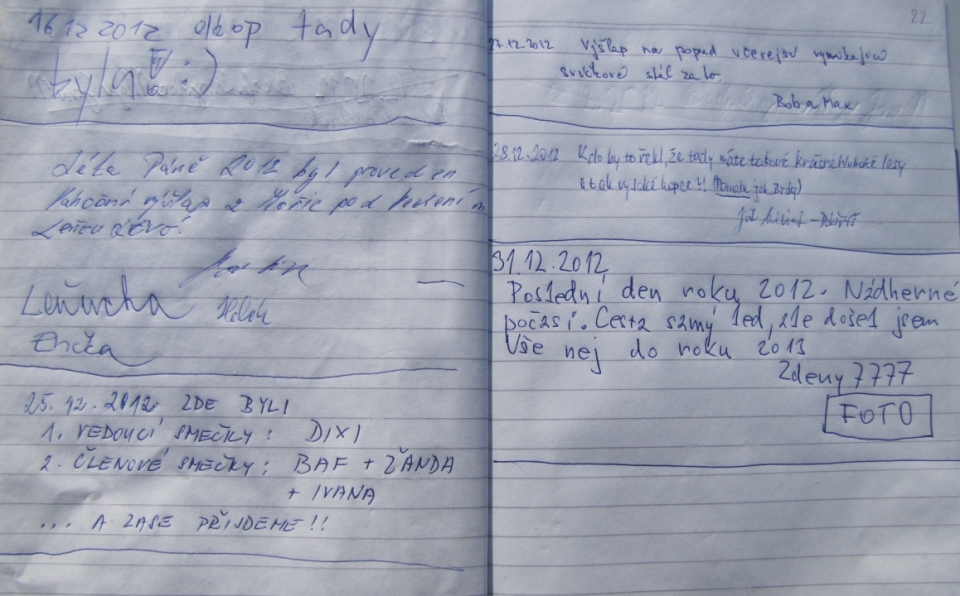 16.12.2012 okop tady
byla :)
Léta Páně 2012 byl proveden
výšlap z Hořic pod
Leňucha
Erička
25.12.2012 ZDE BYLI
1. VEDOUCÍ SMEČKY: DIXI
2. ČLENOVÉ SMEČKY: BAF + ŽANDA
+ IVANA
... A ZASE PŘIJDEME!!
22
27.12.2012 Výšlap na popud včerejší vynikající
svíčkové stál za to.
Bob a Max
28.12.2012 Kdo by to řekl, že tady máte takové krásné hluboké lesy
a tak vysoké kopce?!
31.12.2012
Poslední den roku 2012. Nádherné
počasí. Cesta samý led, ale došel jsem
Vše nej do roku 2013
Zdeny7777
FOTO